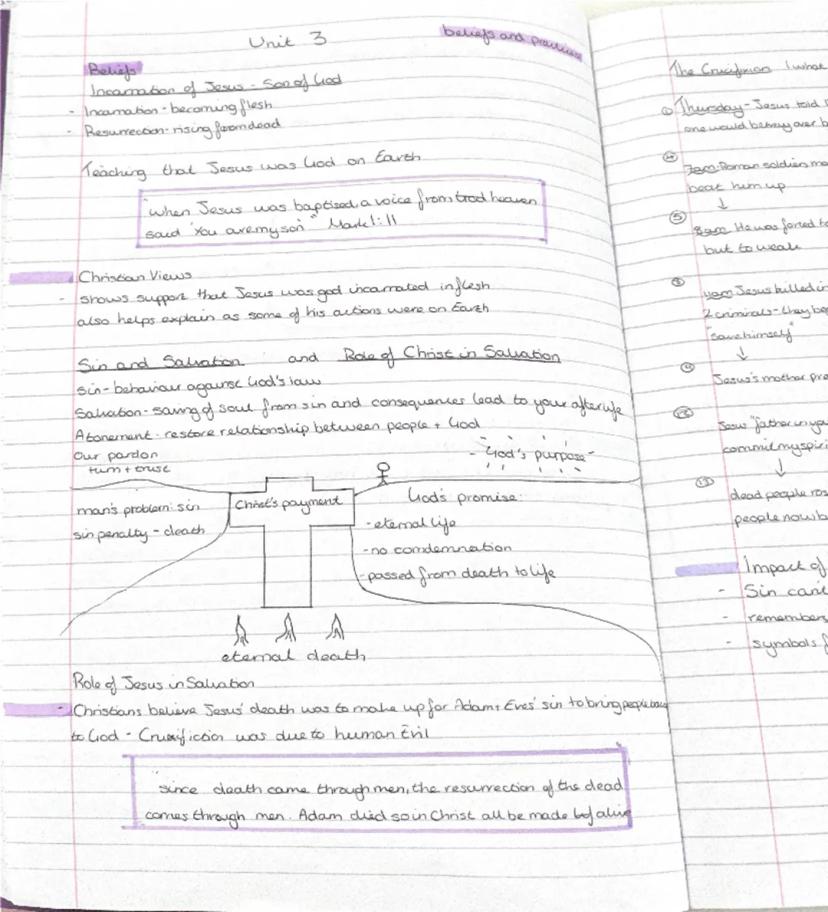 Unit 3
beliefs and
Beliefs
Incarnation of Jesus - Son of God
- Incarnation - becoming flesh
- Resurrection - rising from dead
Teaching that Jesus was God on Earth
"when Jesus was baptised, a voice from heaven
said 'You are my son" Mark 1:11
Christian Views
- shows support that Jesus was god incarnated in flesh
also helps explain as some of his actions were on Earth
Sin and Salvation and Role of Christ in Salvation
Sin - behaviour against God's law
Salvation - saving of soul from sin and consequences lead to your afterlife
Atonement - restore relationship between people + God
Our pardon
turn + trust
- God's purpose -
man's problem: sin
sin penalty - death
Christ's payment
God's promise:
- eternal life
- no comdemnation
- passed from death to life
eternal death
Role of Jesus in Salvation
- Christians believe Jesus' death was to make up for Adam + Eves' sin to bring people
to God - Crucifiction was due to human Evil
"since death came through men, the resurrection of the dead
comes through men. Adam died so in Christ all be made alive
The Crucifixion I what
① Thursday - Jesus told
one would betray over
7am: Roman soldiers
beat him up
↓
⑤ 8am He was forced to
but to weak
Jesus killed
2 criminals - they
"save himself"
↓
Jesus's mother
Jesus "father in
commit my
↓
dead people
people now
Impact of
- Sin
- remembers
- symbols